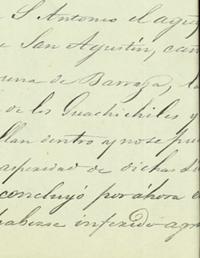 S Antonio el agos
San Agustin, cam
de Barraza, la
de los Guachichiles y
llan dentro y no se pue
asperidad de dichas
concluyó por ahora e
haberse inferido agra